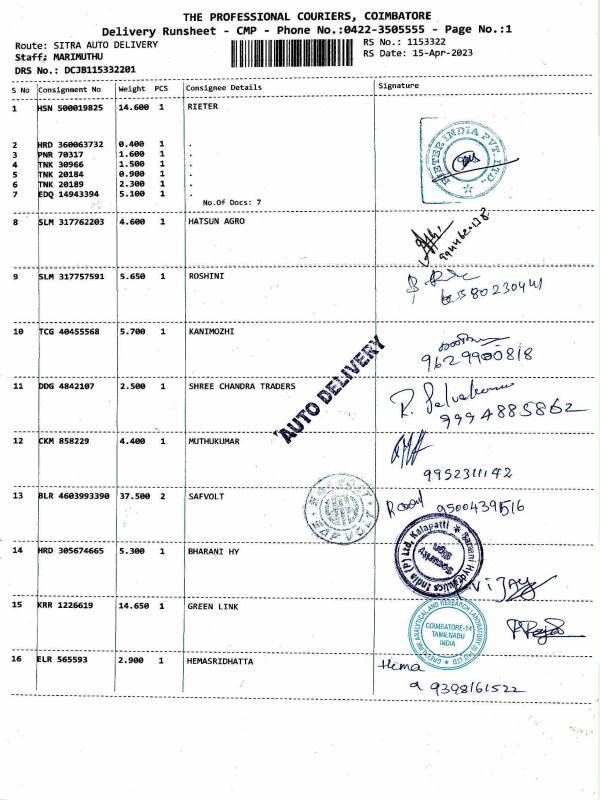 THE PROFESSIONAL COURIERS, COIMBATORE
Delivery Runsheet - CMP - Phone No.:0422-3505555 - Page No.:1
Route: SITRA AUTO DELIVERY
RS No.: 1153322
Staff: MARIMUTHU
RS Date: 15-Apr-2023
DRS No.: DCJB115332201
S No Consignment No Weight PCS Consignee Details Signature
1 HSN 500019825 14.600 1 RIETER
2 HRD 360063732 0.400 1 .
3 PNR 70317 1.600 1 .
4 TNK 30966 1.500 1 .
5 TNK 20184 0.900 1 .
6 TNK 20189 2.300 1 .
7 EDQ 14943394 5.100 1 .
No.Of Docs: 7
RIETER INDIA PVT. LTD.
8 SLM 317762203 4.600 1 HATSUN AGRO
9 SLM 317757591 5.650 1 ROSHINI
6580230441
10 TCG 40455568 5.700 1 KANIMOZHI
9629900818
AUTO DELIVERY
11 DDG 4842107 2.500 1 SHREE CHANDRA TRADERS
R. Selvakumar
9994885862
12 CKM 858229 4.400 1 MUTHUKUMAR
9952311142
13 BLR 4603993390 37.500 2 SAFVOLT
9500439516
14 HRD 305674665 5.300 1 BHARANI HY
Hydraulics India (P) Ltd, Kalapatti
Security Sign
VIJAY
15 KRR 1226619 14.650 1 GREEN LINK
GREEN LINK ANALYTICAL AND RESEARCH LABORATORY (I) PVT LTD
COIMBATORE-14
TAMILNADU
INDIA
16 ELR 565593 2.900 1 HEMASRIDHATTA
Hema
9398161522